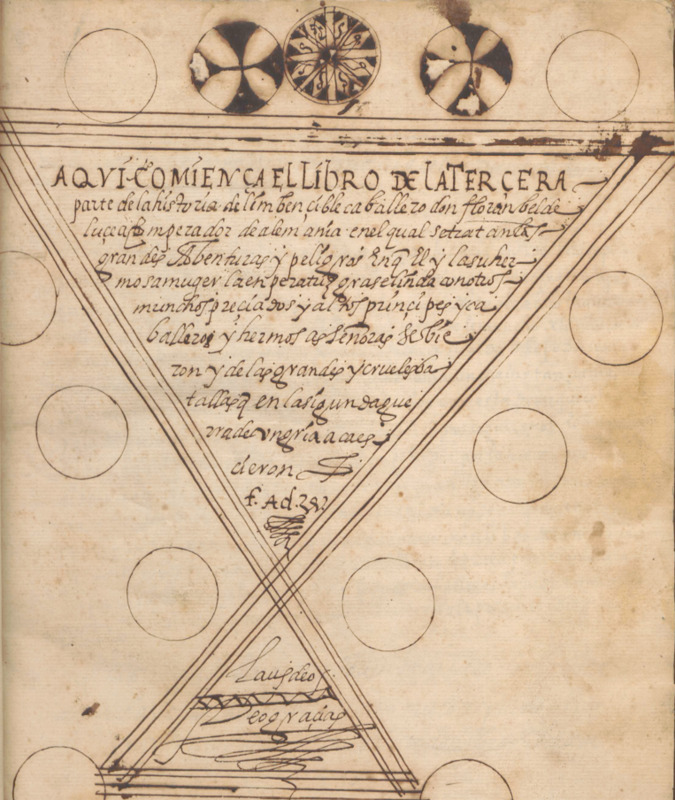 AQVI COMIENÇA EL LIBRO DE LA TERCERA
parte de la historia de linbençible caballero don floranbel de
luçea Emperador de alemania en el qual se tratan las
grandes Abenturas y peligros En q El y la su her
mosa muger la enperatriz graselinda con otros
munchos preçiados y altos prinçipes y ca
balleros y hermosas señoras se bie
ron y de las grandes y crueles ba
tallas q en la sigunda gue
rra de vngria acaes
çieron
f. Ad.
Laus deo
Deo graçias